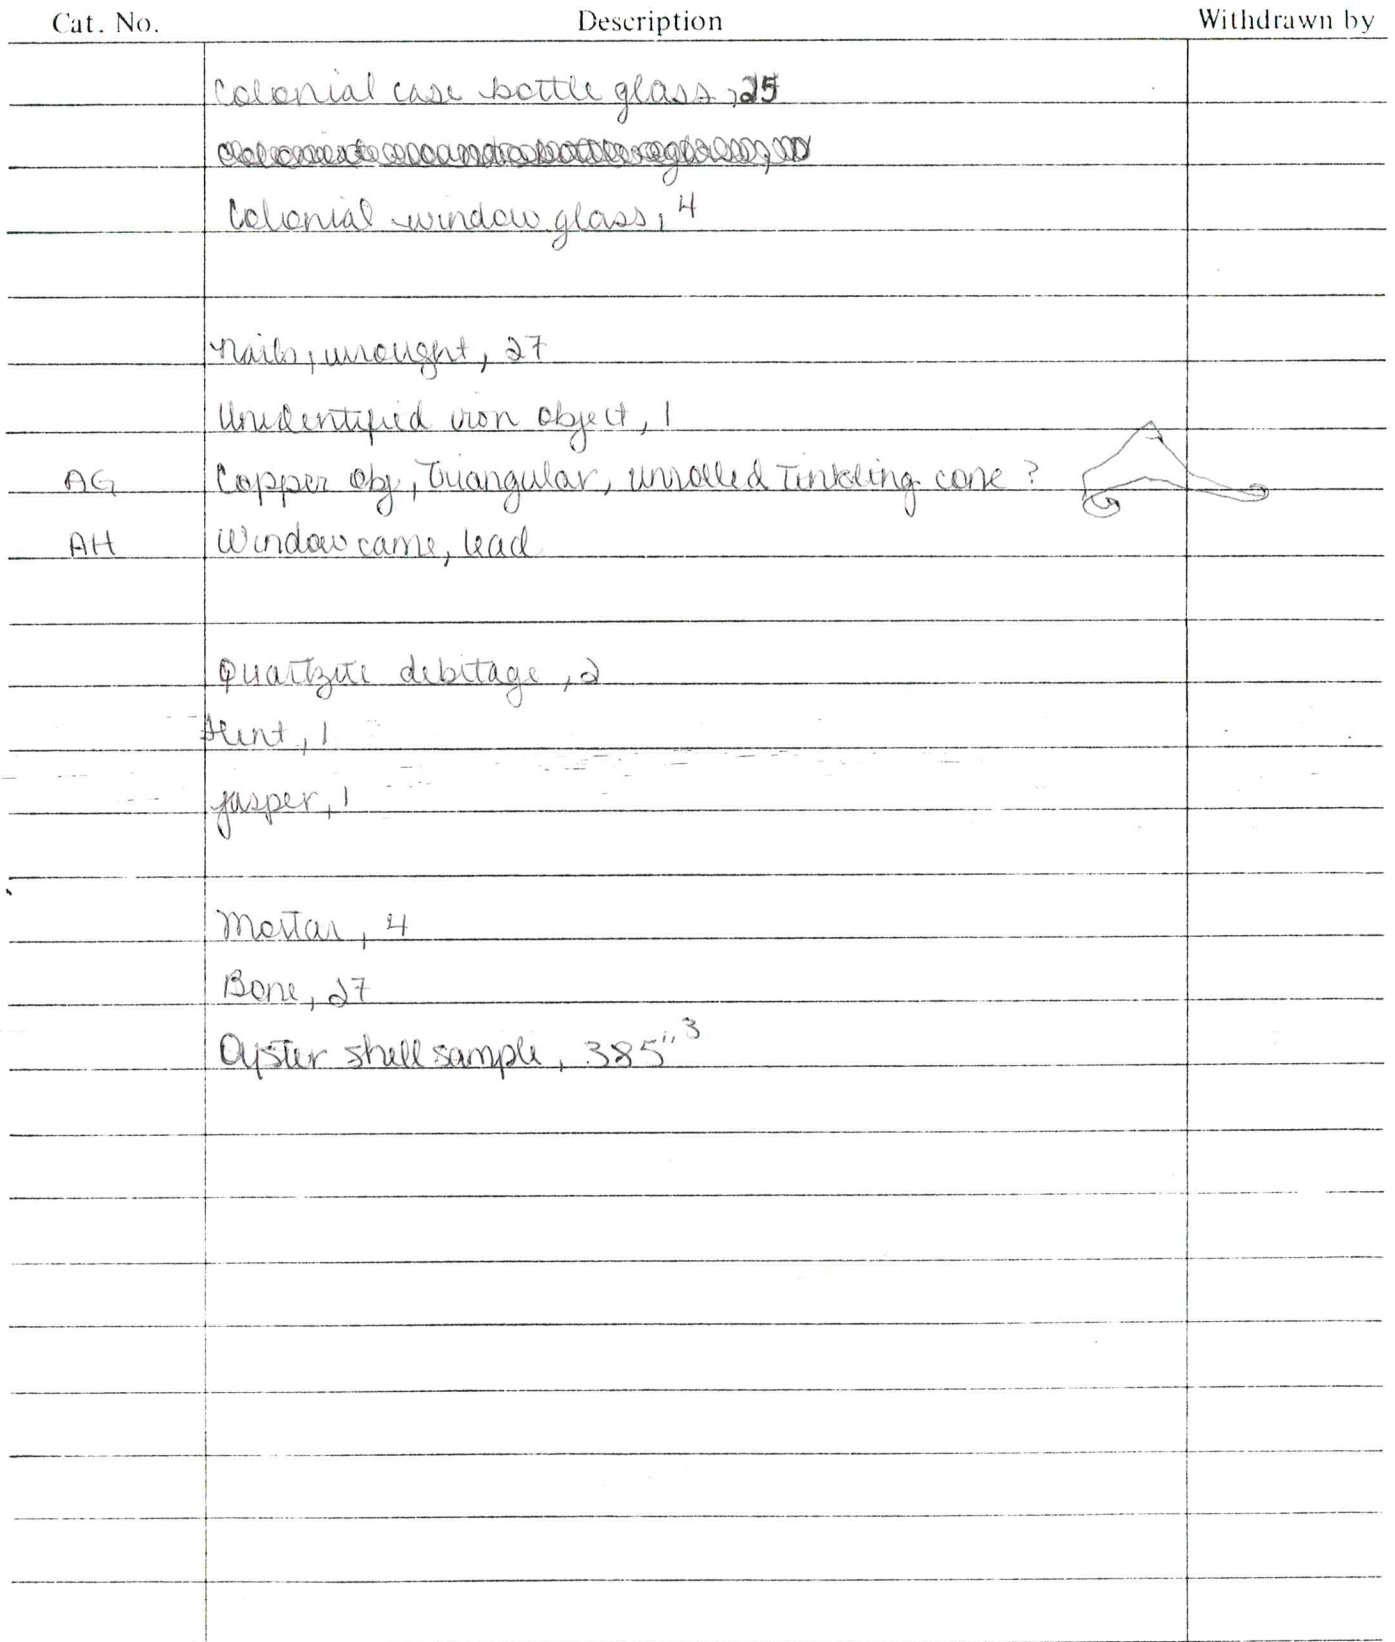 Cat. No. Description Withdrawn by
Colonial case bottle glass, 25
Colonial window glass, 4
Nails, wrought, 27
Unidentified iron object, 1
AG Copper obj, Triangular, unrolled Tinkling cone ?
AH Window came, lead
Quartzite debitage, 2
Flint, 1
Jasper, 1
Mortar, 4
Bone, 27
Oyster shell sample, 385"³